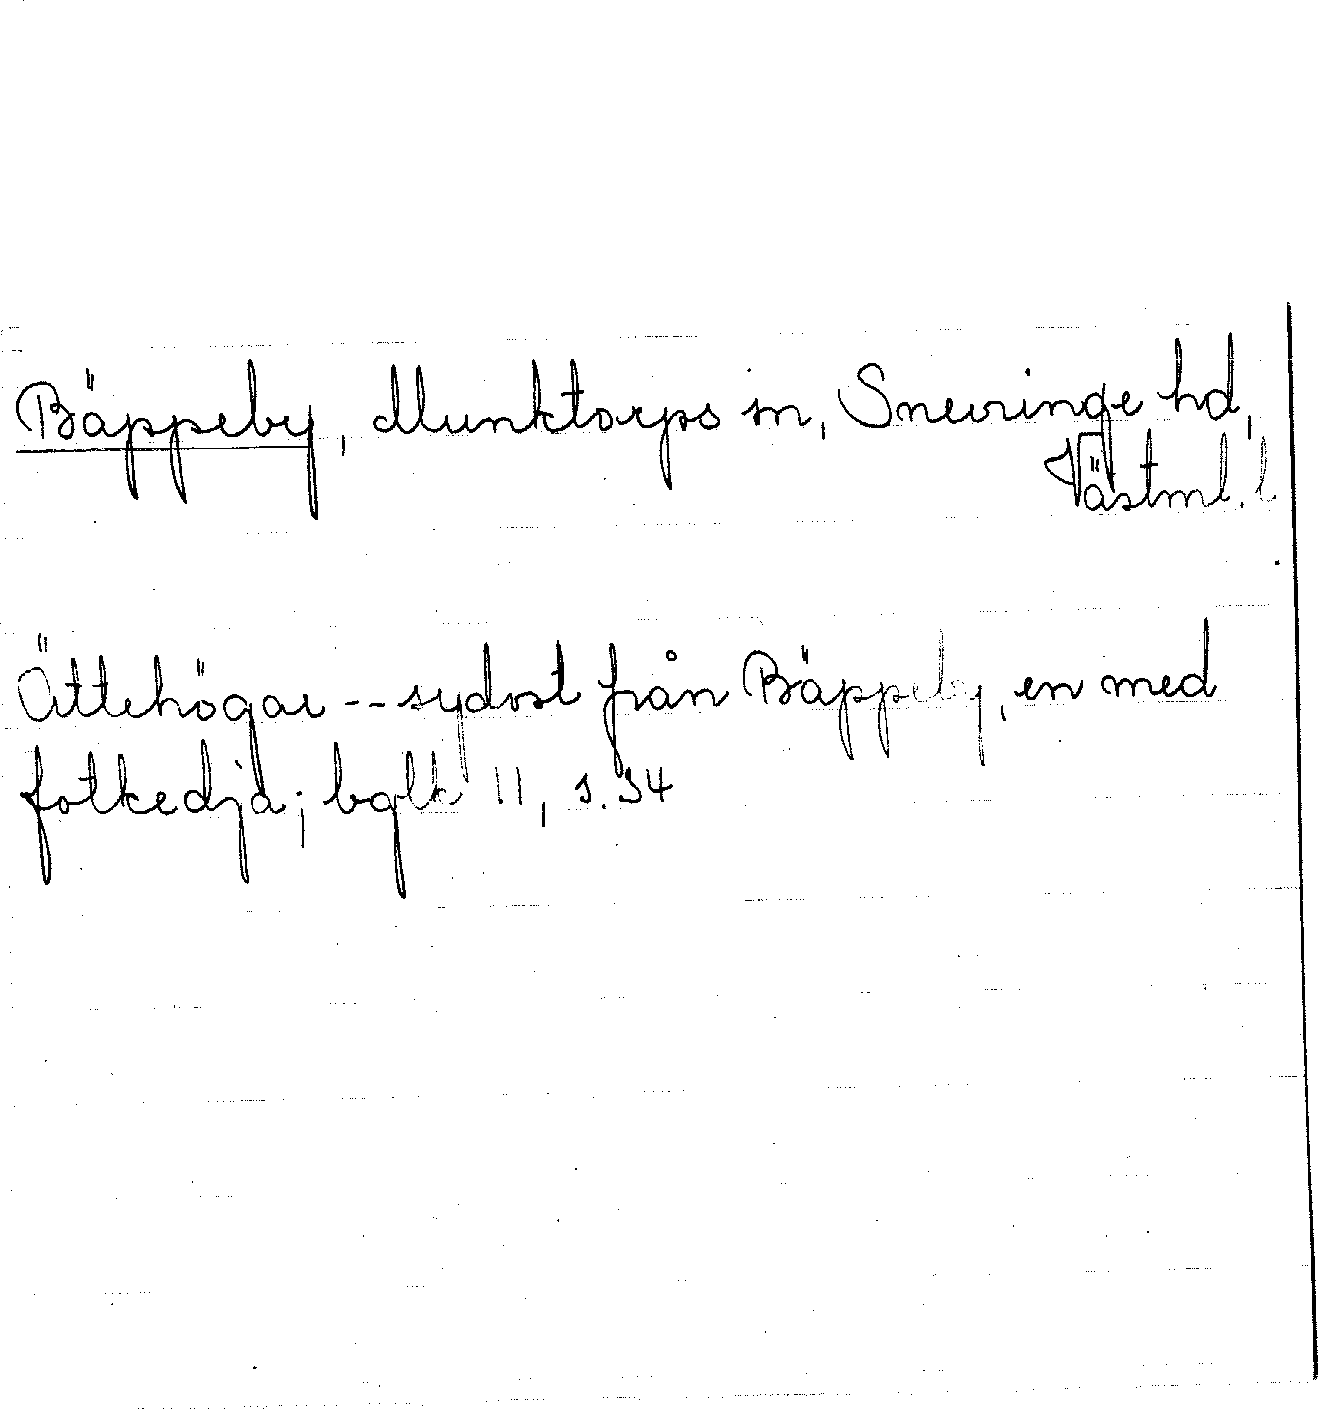 Bäppeby, Munktorps sn, Snevringe hd,
Västml. l
Ättehögar -- sydost från Bäppeby, en med
fotkedja; bglk 11, s. 34